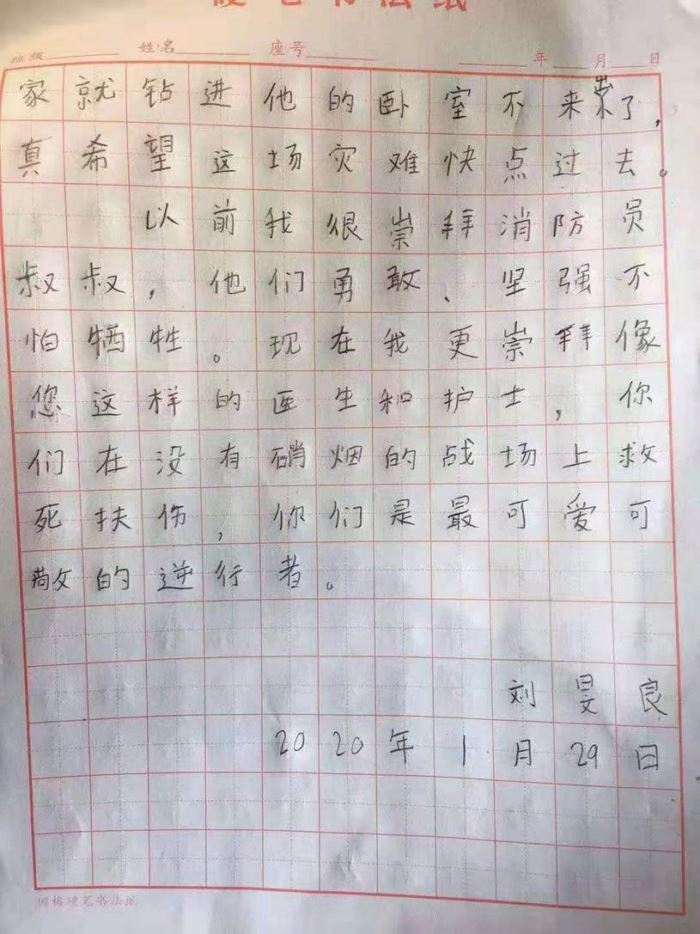 硬笔书法纸
班级 姓名 座号 年 月 日
家就钻进他的卧室不来了,
真希望这场灾难快点过去。
以前我很崇拜消防员
叔叔,他们勇敢、坚强不
怕牺牲。现在我更崇拜像
您这样的医生和护士,你
们在没有硝烟的战场上救
死扶伤,你们是最可爱可
敬的逆行者。
刘旻良
2020年1月29日